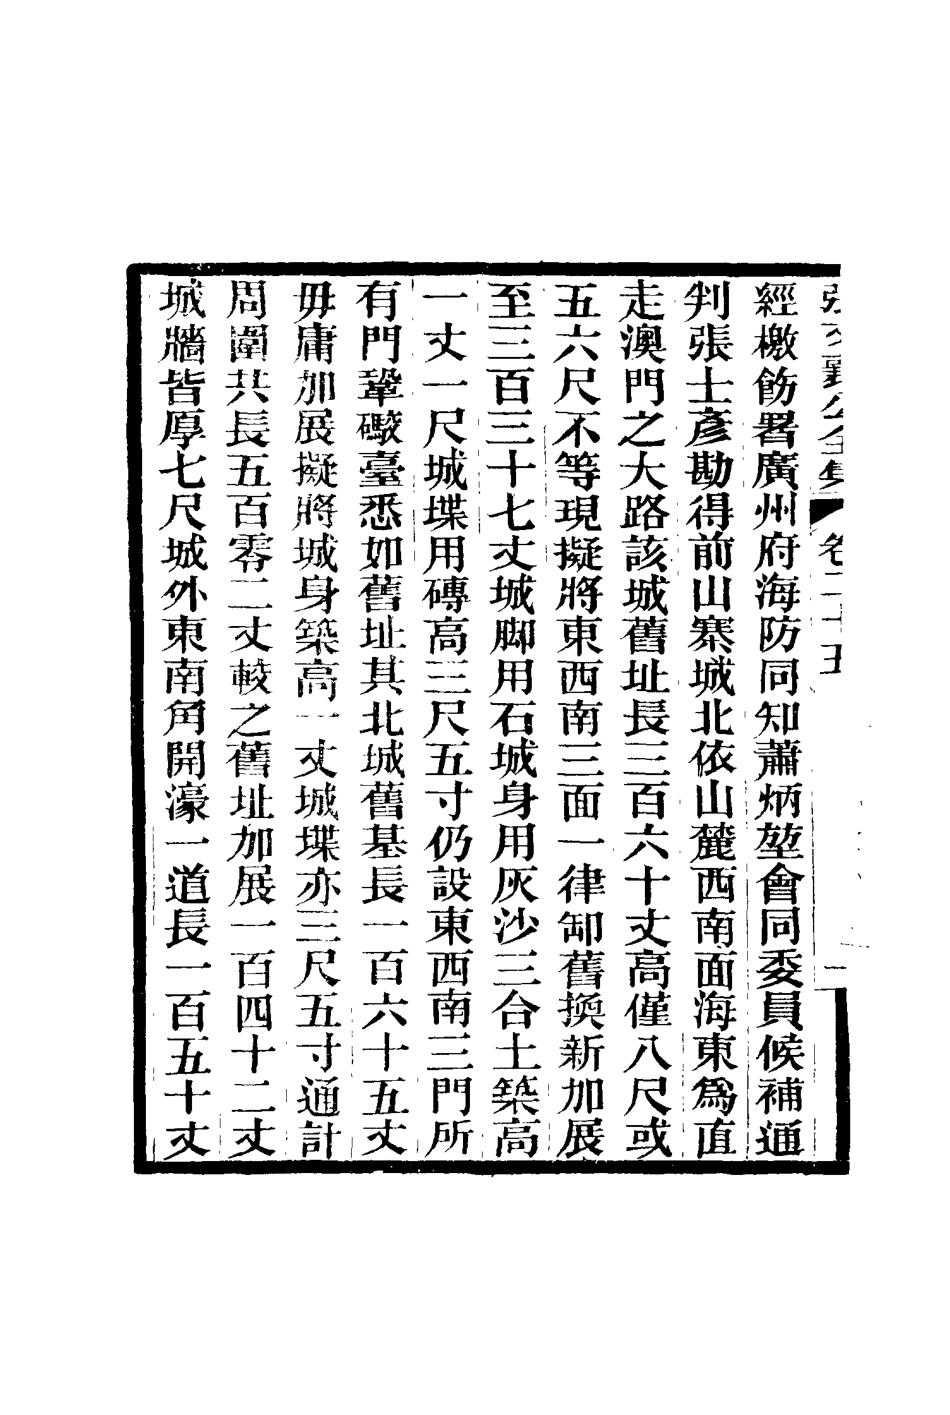 張文襄公全集 卷二十五 一
經檄飭署廣州府海防同知蕭炳堃會同委員候補通
判張士彥勘得前山寨城北依山麓西南面海東爲直
走澳門之大路該城舊址長三百六十丈高僅八尺或
五六尺不等現擬將東西南三面一律卸舊換新加展
至三百三十七丈城脚用石城身用灰沙三合土築高
一丈一尺城堞用磚高三尺五寸仍設東西南三門所
有門鞏礮臺悉如舊址其北城舊基長一百六十五丈
毋庸加展擬將城身築高一丈城堞亦三尺五寸通計
周圍共長五百零二丈較之舊址加展一百四十二丈
城牆皆厚七尺城外東南角開濠一道長一百五十丈